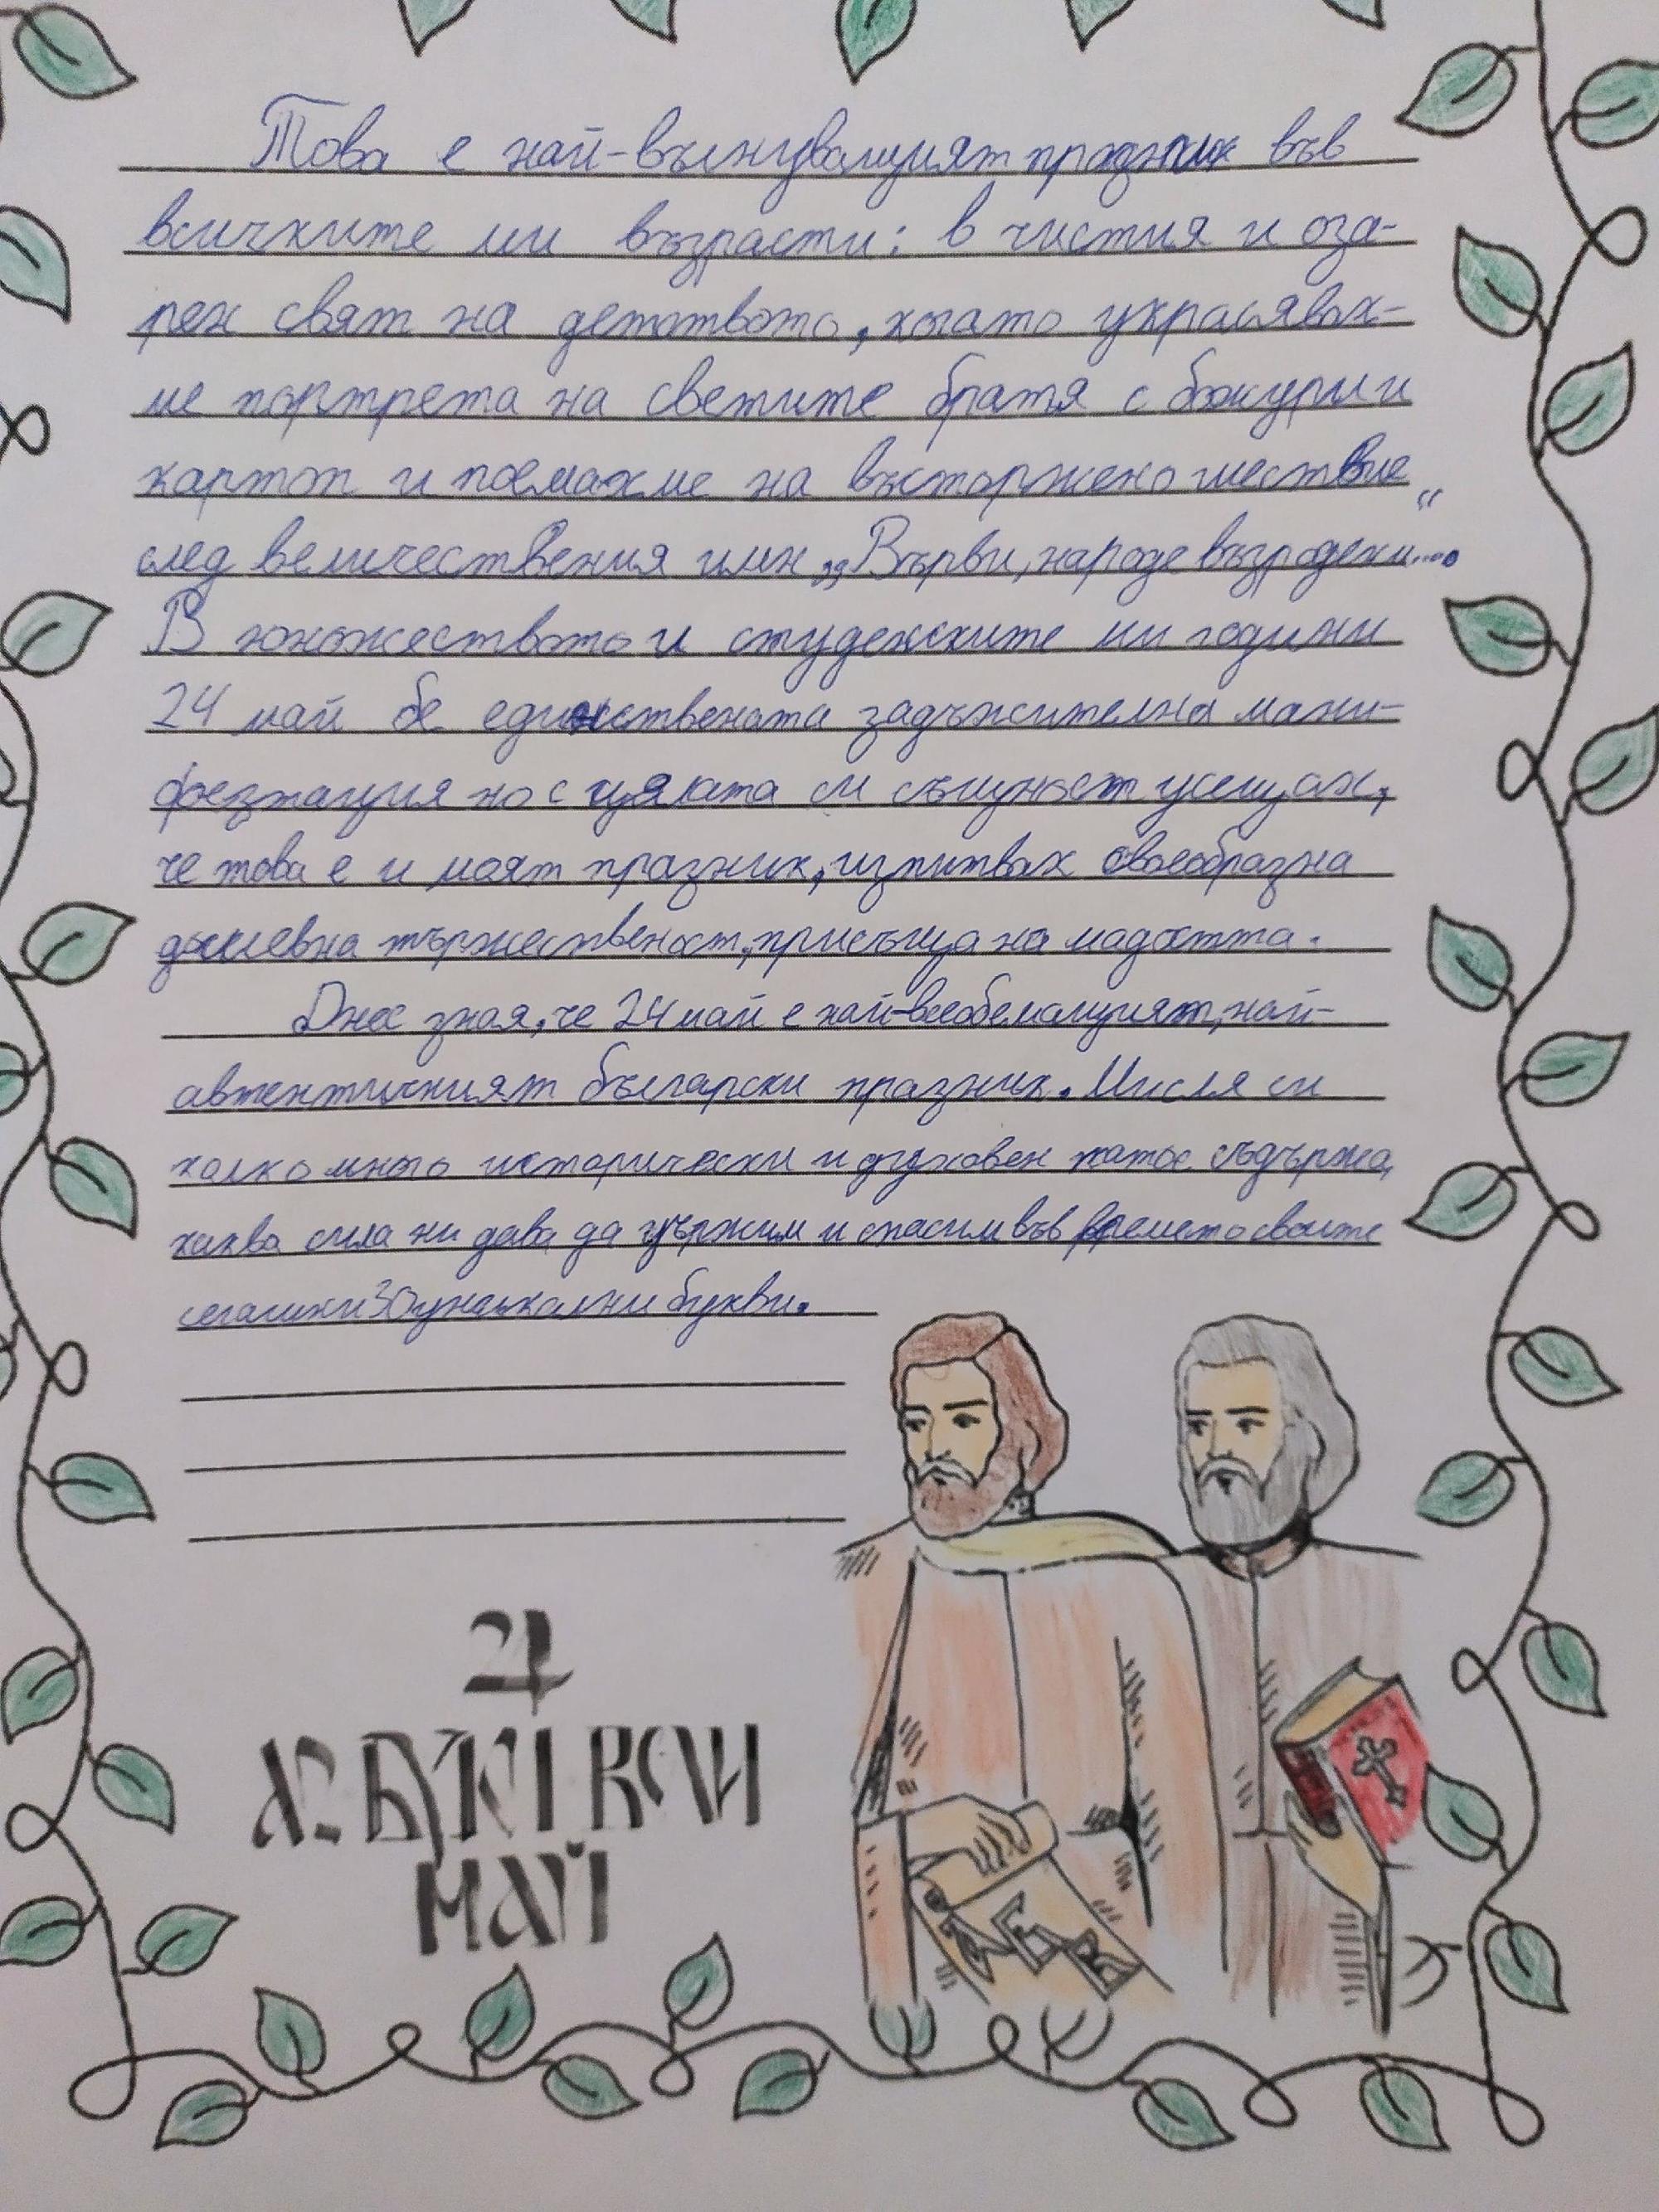 Това е най-вълнуващият празник във
всичките ми възрасти: в чистия и оза-
рен свят на детството, когато украсявах-
ме портрета на светите братя с божури и
картон и поемахме на възторжено шествие
след величествения химн „Върви, народе възродени...“
В юношеството и студенските ми години
24 май бе единствената задължителна мани-
фезтация но с цялата си същност усещах,
че това е и моят празник, изпитвах своеобразна
душевна тържественост, присъща на младостта.
Днес зная, че 24 май е най-всеобемащият, най-
автентичният български празник. Мисля си
колко много исторически и духовен патос съдържа,
каква сила ни дава да удържим и спасим във времето своите
сегашни 30 уникални букви.
24
АЗ БУКИ ВЕДИ
МАЙ
А Б В